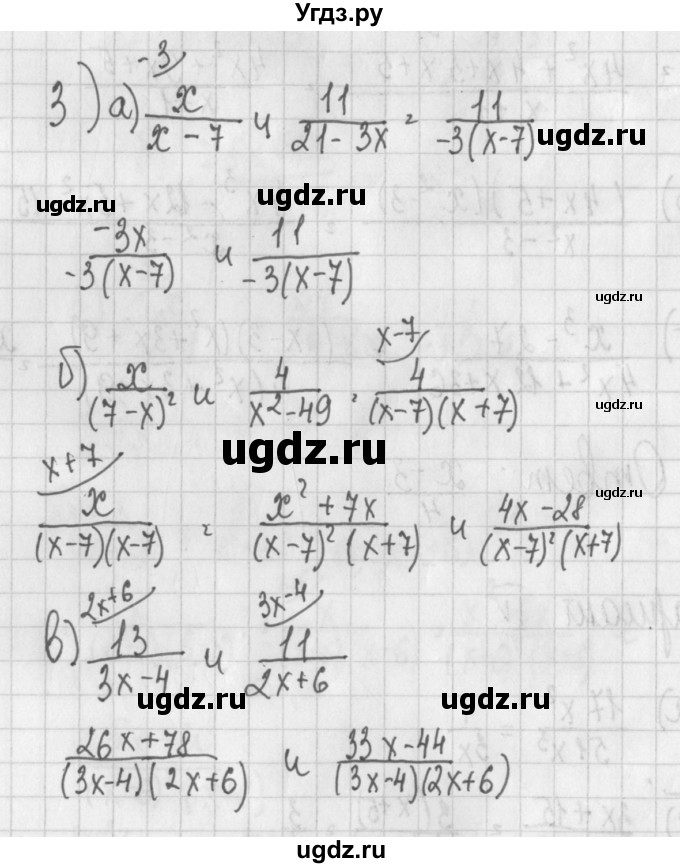 Угдз.ру
-3
3) а) x/(x-7) и 11/(21-3x) = 11/(-3(x-7))
ugdz.ru
ugdz.ru
ugdz.ru
-3x/(-3(x-7)) и 11/(-3(x-7))
ugdz.ru
x-7
б) x/(7-x)² и 4/(x²-49) = 4/((x-7)(x+7))
ugdz.ru
x+7
x/((x-7)(x-7)) = (x²+7x)/((x-7)²(x+7)) и (4x-28)/((x-7)²(x+7))
ugdz.ru
2x+6 3x-4
в) 13/(3x-4) и 11/(2x+6)
ugdz.ru
ugdz.ru
(26x+78)/((3x-4)(2x+6)) и (33x-44)/((3x-4)(2x+6))
ugdz.ru
ugdz.ru